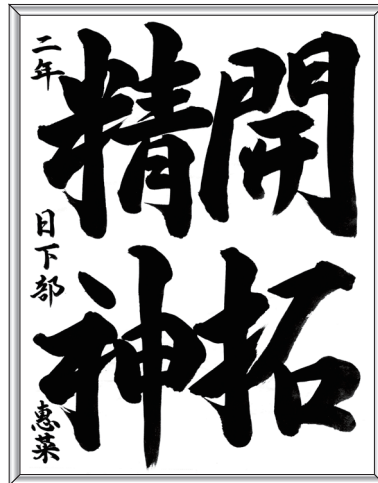 開拓
精神
二年 日下部 恵菜